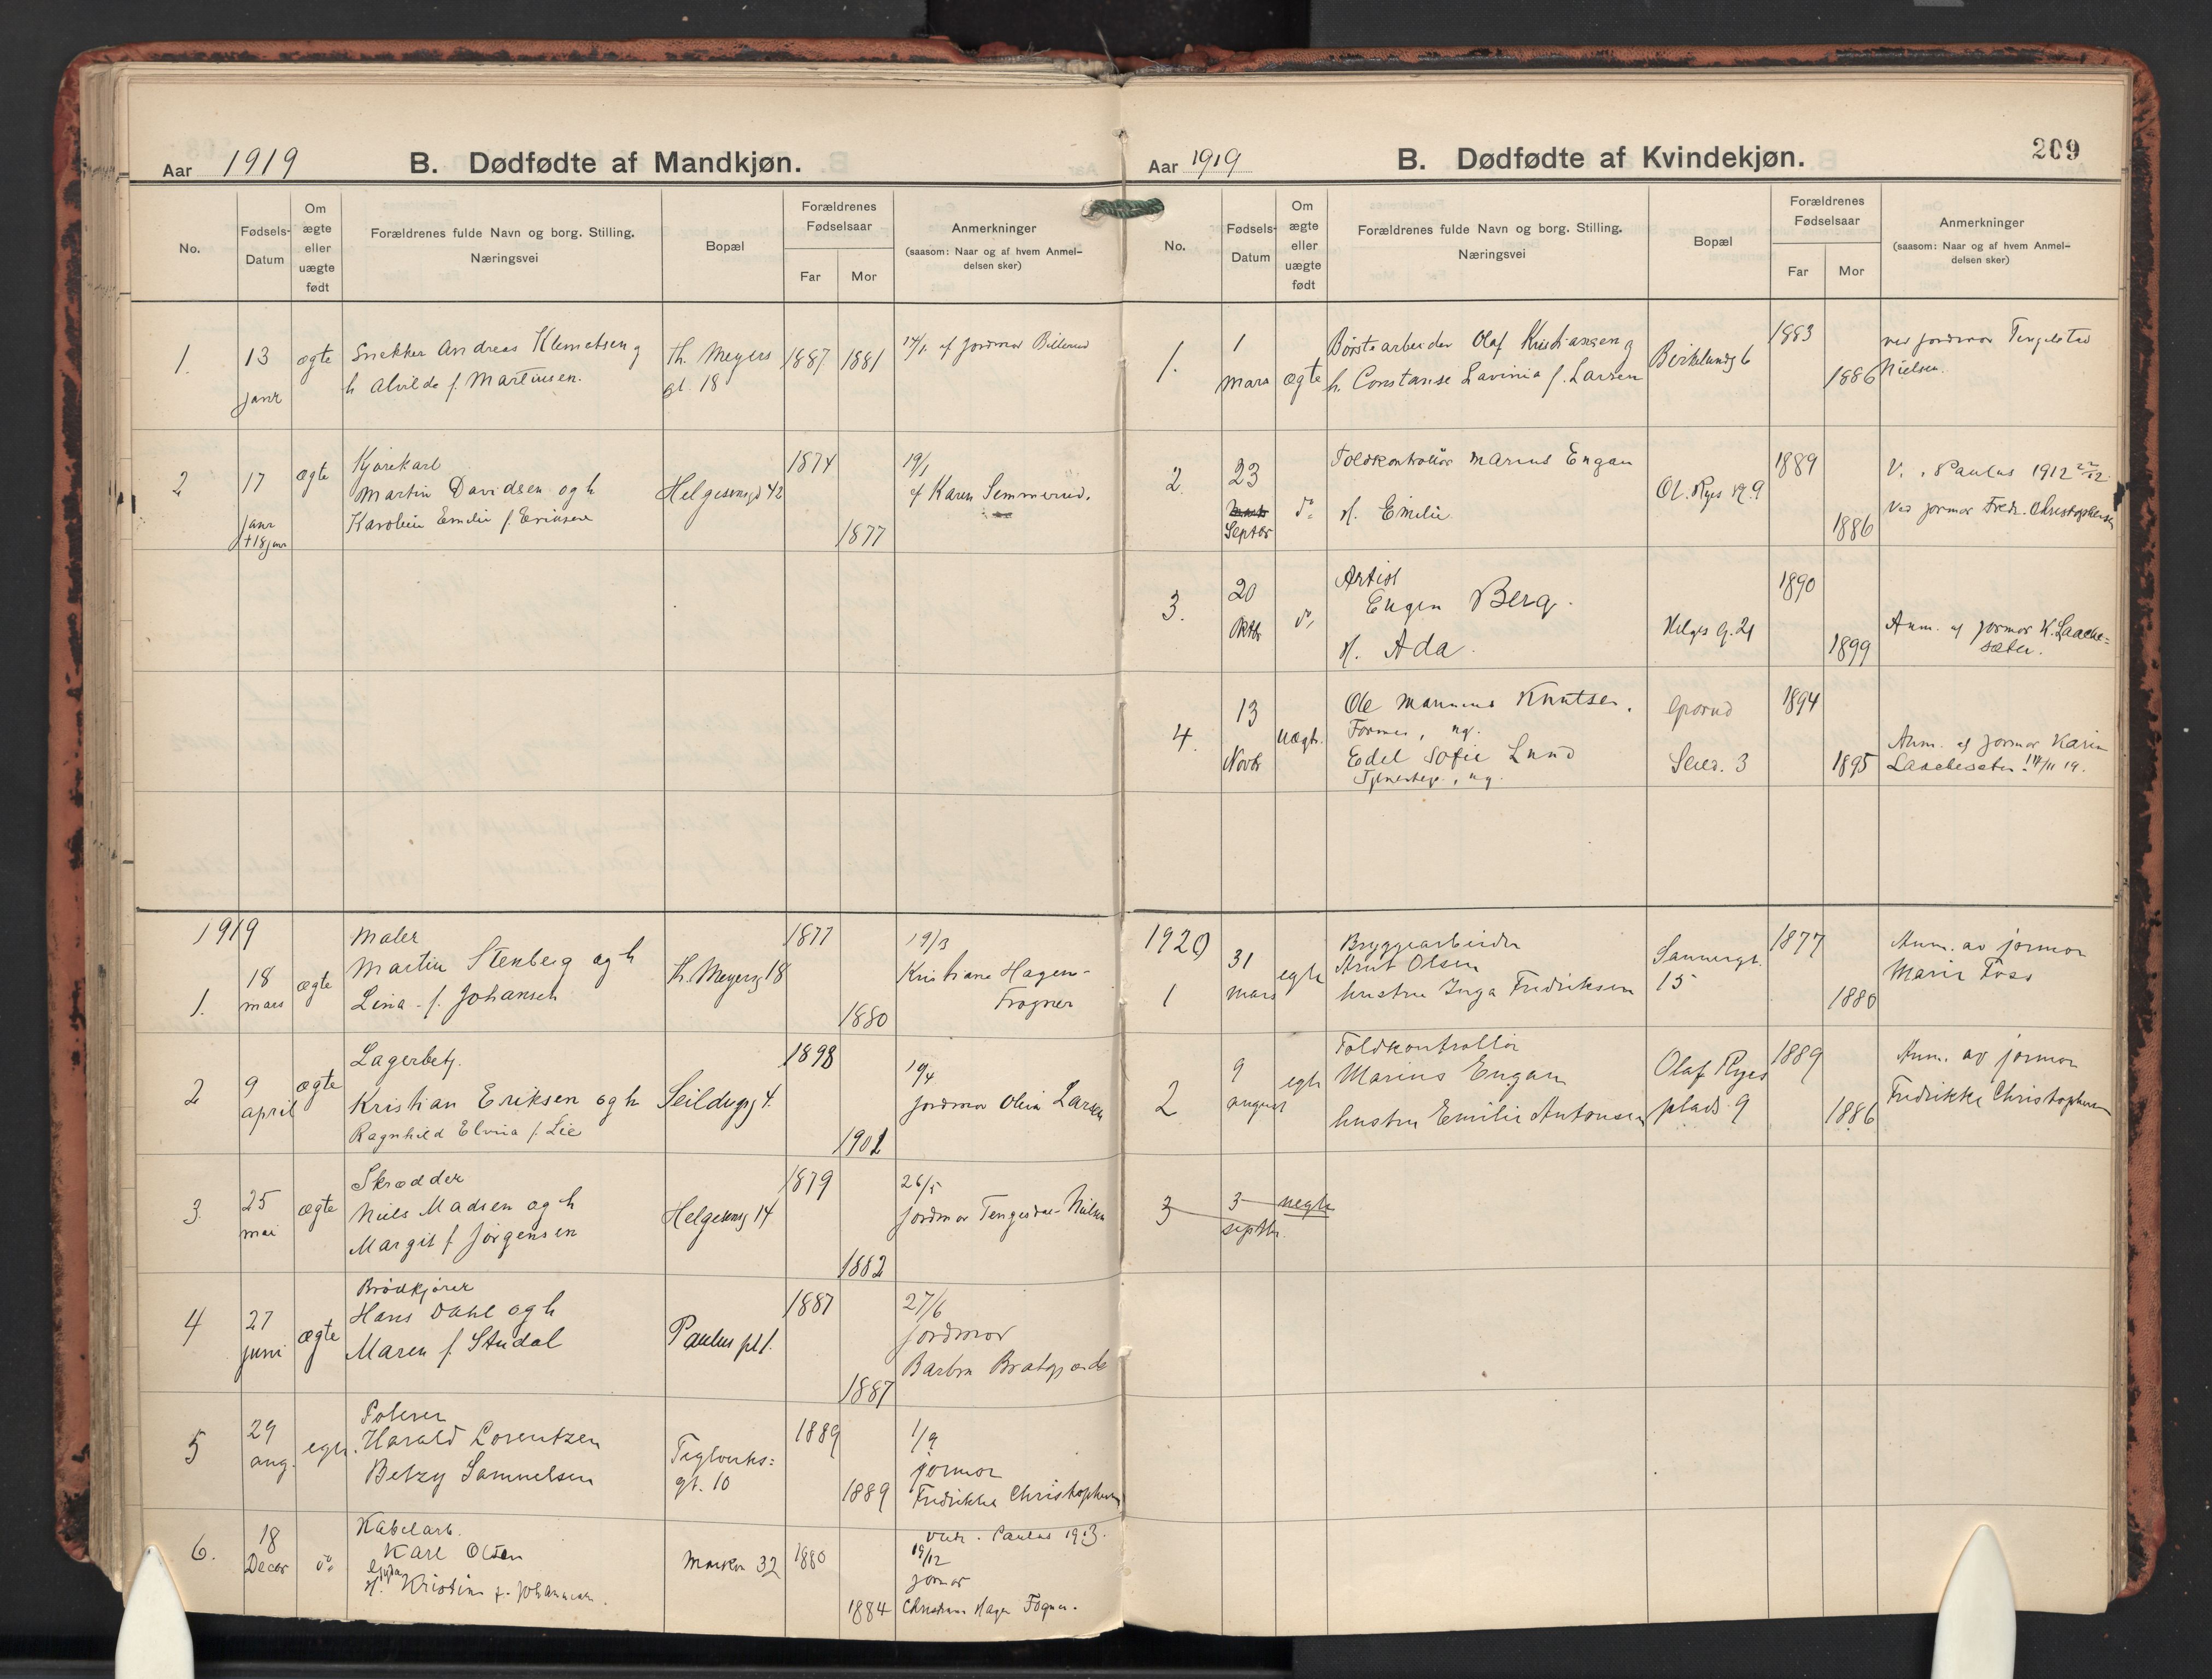 Aar 1919 B. Dødfødte af Mandkjøn.
No.
Fødsels-
Datum
Om
ægte
eller
uægte
født
Forældrenes fulde Navn og borg. Stilling.
Næringsvei
Bopæl
Forældrenes
Fødselsaar
Far
Mor
Anmerkninger
(saasom: Naar og af hvem Anmel-
delsen sker)
1.
13
janr
ægte
Snekker Andreas Klemetsen og
h Alvilde f. Martinsen.
Th. Meyers
gt. 18
1887
1881
14/1 af jordmor Billerud
2
17
janr
+18 janr
ægte
Kjørekarl
Martin Davidsen og h
Karoline Emilie f. Eriksen
Helgesensgd 42
1874
1877
19/1
af Karen Semmerud.
1919
1.
18
mars
ægte
Maler
Martin Stenberg og h
Lina f. Johansen
Th. Meyersg 18
1877
1880
19/3
Kristiane Hagen-
Frogner
2
9
april
ægte
Lagerbetj.
Kristian Eriksen og h
Ragnhild Elvina f. Lie
Seildugsg 4.
1898
1901
19/4
jordmor Olivia Larsen
3.
25
mai
ægte
Skrædder
Niels Madsen og h
Margit f Jörgensen
Helgesensg 14
1879
1882
26/5
jordmor Tengesdal-Nielsen
4
27
juni
ægte
Brödkjører
Hans Dahl og h
Maren f. Studal
Paulus pl 1.
1887
1887
27/6
jordmor
Barbra
5
29
aug.
egte.
Polerer
Harald Lorentzen
Betzy Samuelsen
Teglverks=
gt. 10
1889
1889
1/9
jormor
Fredrikke Christophersen
6.
18
Decbr
do
Kabelarb.
Karl Olsen
H. Kristine f. Johannesen.
Markv 32
1880
1884
Viet. Paulus 1913.
19/12
jormor
Christiane Hagen Fogner.
Aar 1919 B. Dødfødte af Kvindekjøn. 209
No.
Fødsels-
Datum
Om
ægte
eller
uægte
født
Forældrenes fulde Navn og borg. Stilling.
Næringsvei
Bopæl
Forældrenes
Fødselsaar
Far
Mor
Anmerkninger
(saasom: Naar og af hvem Anmel-
delsen sker)
1.
1
mars
ægte
Børstearbeider Olaf Kristiansen og
h. Constanse Lavinia f. Larsen
Birkelundg 6
1883
1886
ved jordmor
Nielsen.
2.
23
Mars
Septbr
do
Toldkontrollör Marius Engan
H. Emilie
Ol. Ryes pl. 9
1889
1886
V. i Paulus 1912
Ved jormor Fredr. Christophersen
3.
20
Oktbr
do
Artist
Eugen Berg.
H. Ada.
Helges G. 21
1890
1899
Anm. af jormor K. Laache=
sæter.
4.
13
Novbr
uægte.
Ole Knutsen.
Former, ug.
Edel Sofie Lund
Tjenestepi., ug.
Grorud
Seild. 3
1894
1895
Anm. af jormor Karin
Laachesæter 14/11 19.
1920
1
31
mars
egte
Bryggearbeider
Knut Olsen
hustru Inga Fredriksen
Sannergt.
15
1877
1880
Anm. av jormor
Marie Foss
2
9
august
egte
Toldkontrollör
Marius Engan
hustru Emilie Antonsen
Olaf Ryes
plads 9
1889
1886
Anm. av jormor
Fredrikke Christophersen
3
3
septbr.
uegte